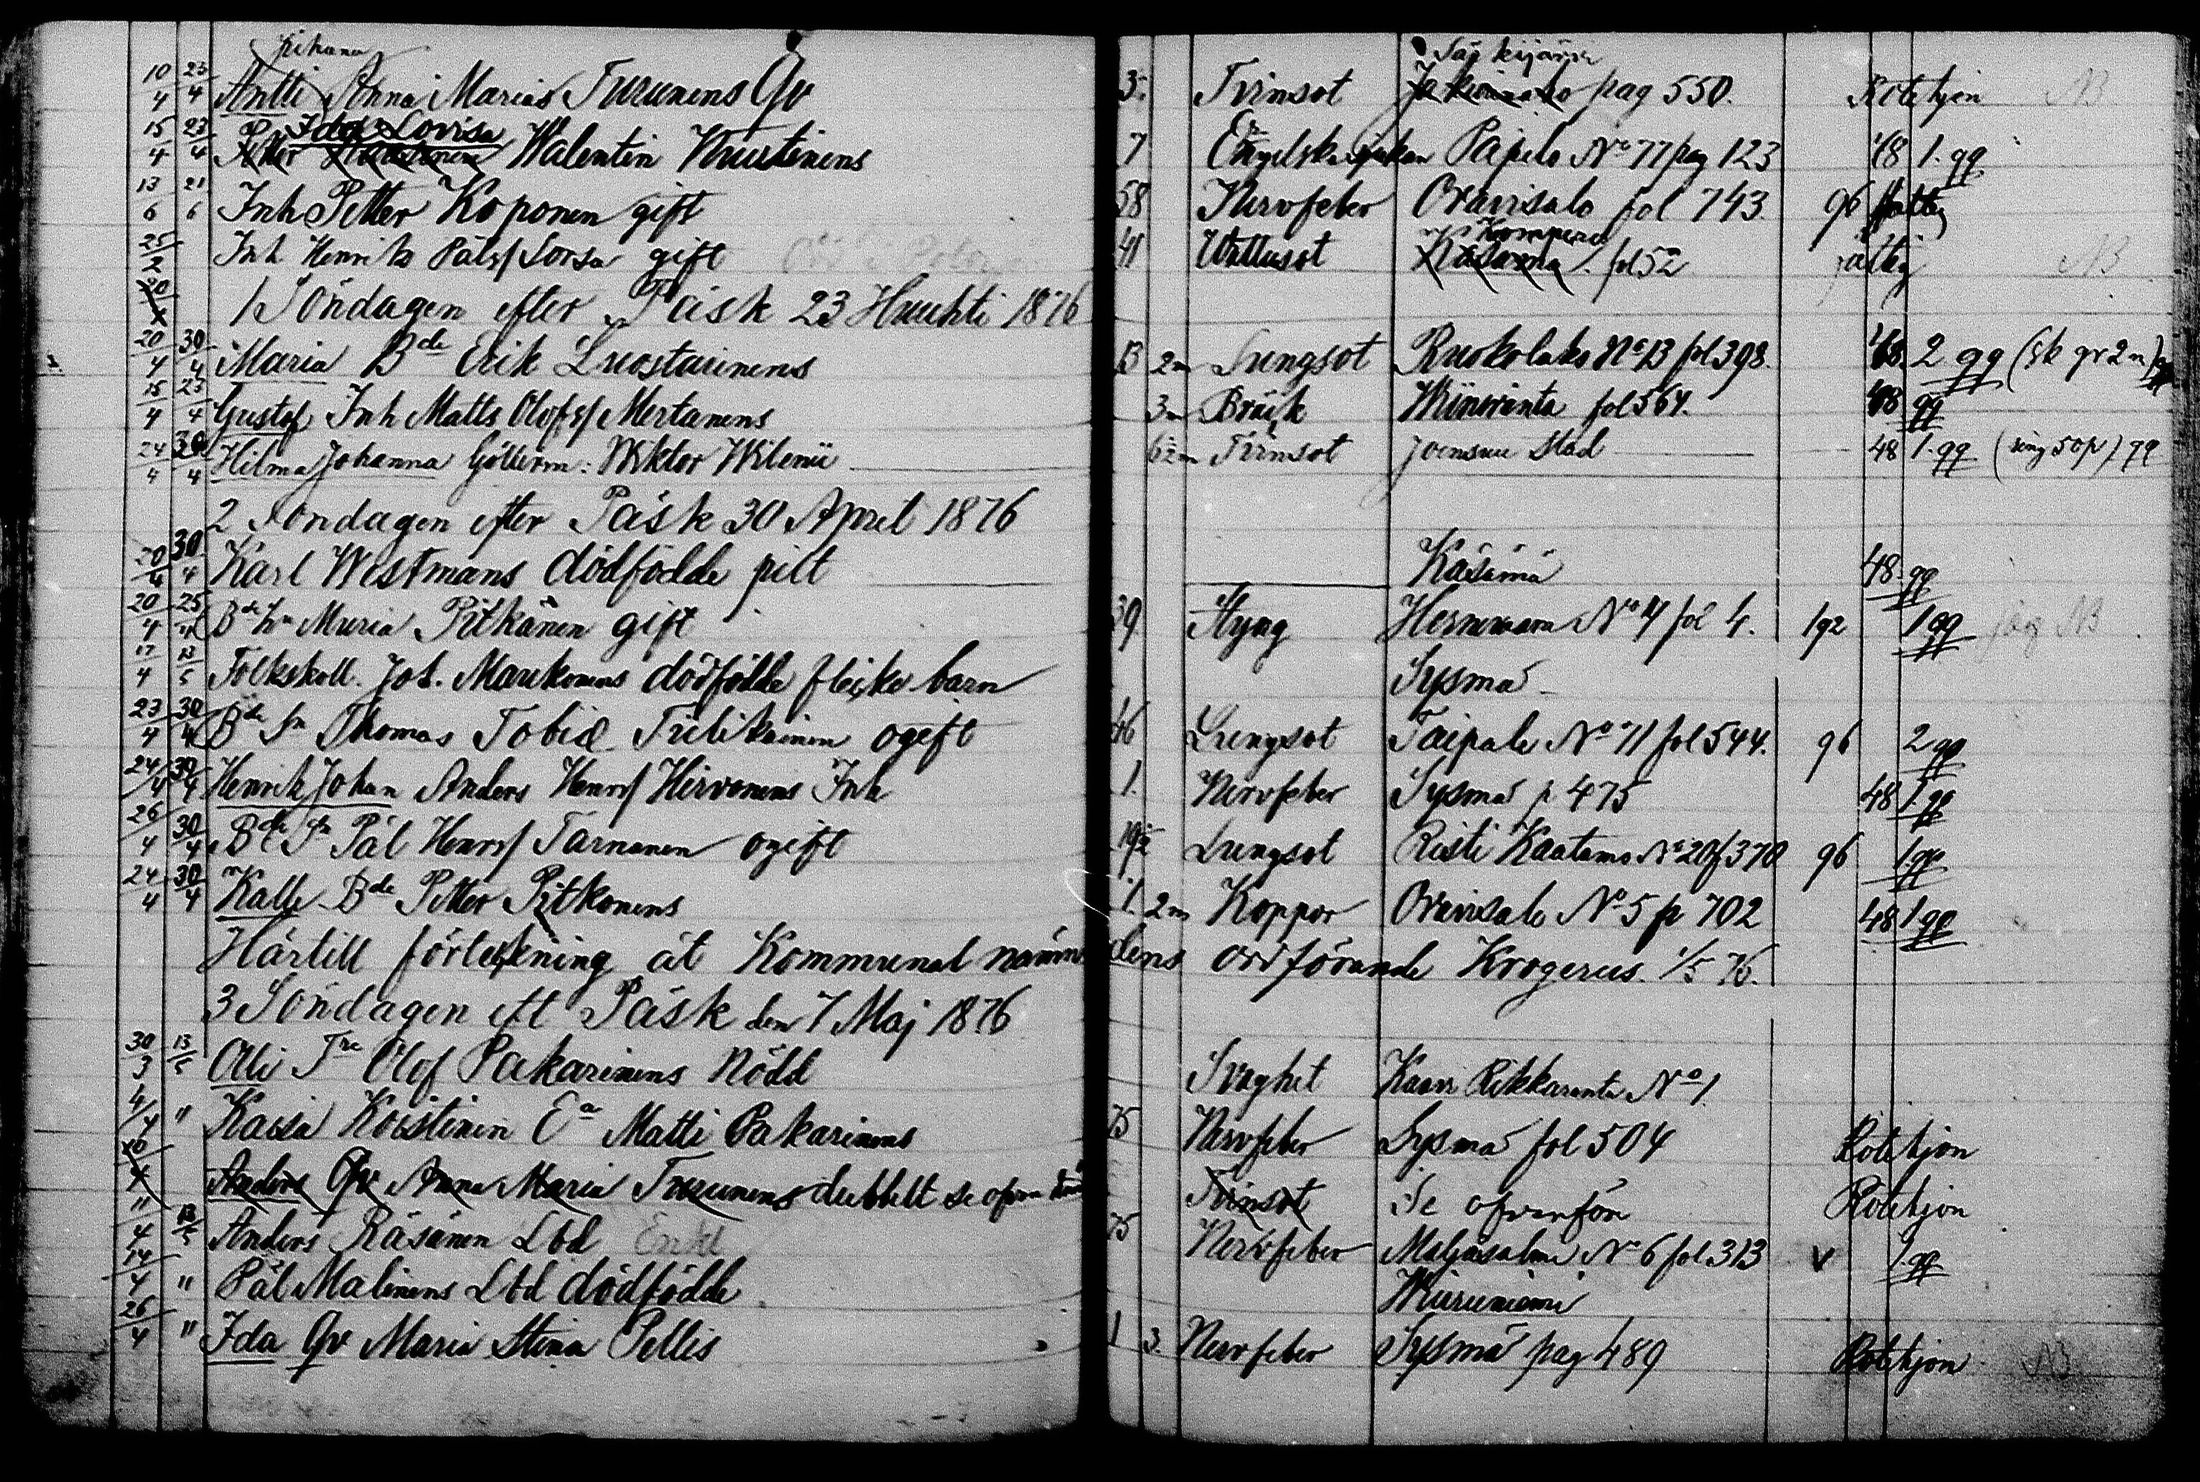 Johana Säj kijärvi
10/4 23/4 Antti Anna Marias Turunens Qv 3. Tvinsot pag 550. Rotehjon NB
Ida Lovisa
15/4 23/4 Petter Walentin Mustinens 7 Engelska sjukan Papelo No 77 pag 123 48 1. qq
13/6 21/6 Inh Petter Koponen gift 58 Nervfeber Oravisalo fol 743 96 fattig
Kompero
25/2 Inh Henrik Pålss Sorsa gift 41 Wattusot Käsämä fol 52 fattig NB
1 Söndagen efter Påsk 23 Huuhti 1876
20/4 30/4 Maria Bde Erik Luostarinens 13 2m Lungsot Ruokolaks No 13 fol 398. 48 2 qq (sk gr 2 m)
15/4 23/4 Gustaf Inh Matts Olofss Mertanens 3m Bråck Wiinranta fol 564. 48 qq
24/4 30/4 Hilma Johanna Göllerm: Wiktor Wilenii 6½m Tvinsot Joensuu Stad 48 1. qq (ring 50 p) 79
2 Söndagen efter Påsk 30 April 1876
20/4 30/4 Karl Westmans dödfödde pilt Käsämä 48 qq
20/4 25/4 Bde hu Maria Pitkänen gift 39 Styng Herneaara No 4 fol 4. 192 1 qq NB
17/4 13/5 Folkskoll. Joh. Maukonens dödfödda flicke barn Sysmä
23/4 30/4 Bde Sn Thomas Tobiæ Tulikainen ogift 46 Lungsot Taipale No 11 fol 544. 96 2 qq
24/4 30/4 Henrik Johan Anders Henrss Hirvonens Inh 1. Nervfeber Sysmä p 475 48 1. qq
26/4 30/4 Bde Sn Pål Henrss Tarnanen ogift 19½ Lungsot Risti Kaatamo No 20 f 370 96 1 qq
24/4 30/4 Kalle Bde Petter Pitkonens 1. 2m Koppor Oravisalo No 5 p 702 48 1 qq
Härtill förteckning åt Kommunal nämndens ordförande Krogerus. 1/5 76.
3 Söndagen eft Påsk den 7 Maj 1876
30/3 13/5 Olli Tre Olof Pakarinens Nödd Svaghet Kaavi Rikkaranta No 1.
4/4 " Kaisa Koistinen Ea Matti Pakarinens 75 Nervfeber Sysmä fol 504 Rotehjon
20/4 Anders Qv Anna Maria Turunens dubbelt se ofvan Tvinsot Se ofvanföre Rotehjon
11/4 13/5 Anders Räsänen Lbd Enkl 75 Nervfeber Maljasalmi No 6 fol 313 v 1 qq
14/4 " Pål Malinens Lbd dödfödde Wiuruniemi
26/4 " Ida Qv Maria Stina Pellis 1 3 Nervfeber Sysmä pag 489 Rotehjon NB